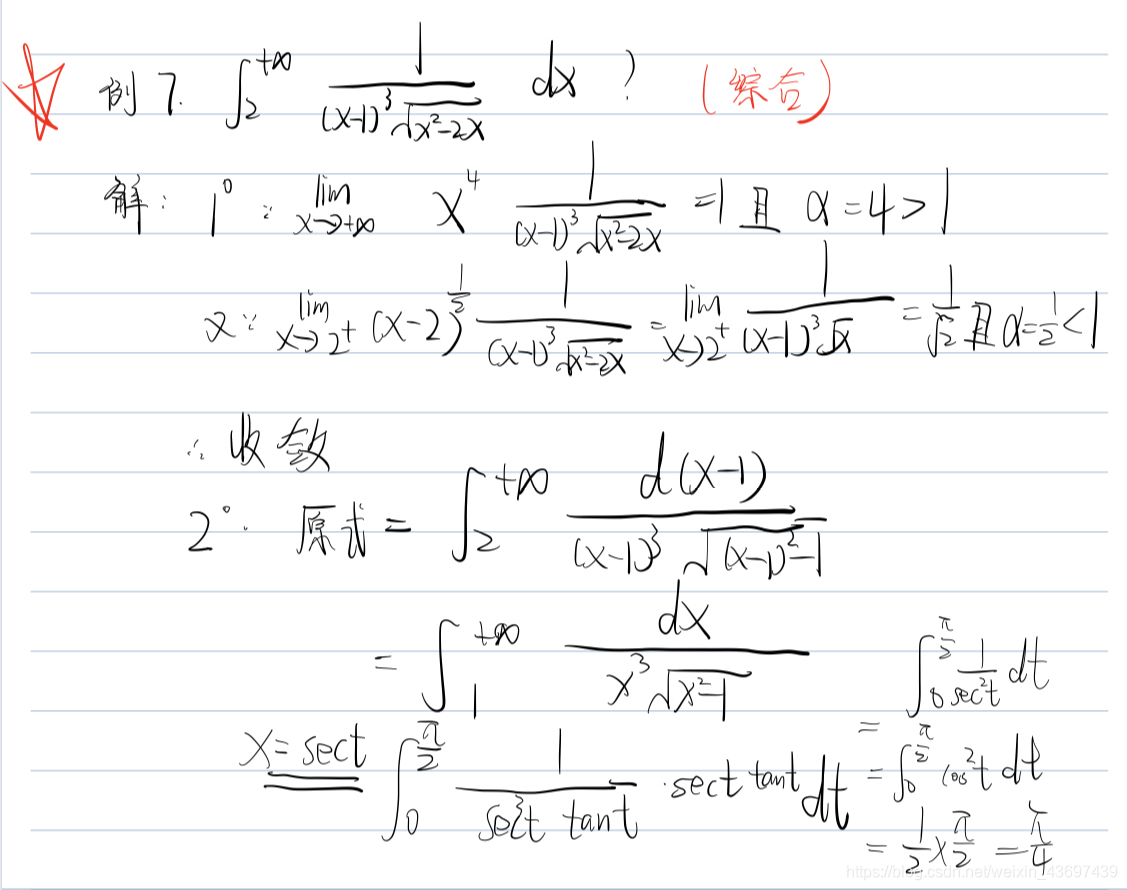 例7. ∫₂^{+∞} 1/((x-1)³√(x²-2x)) dx ? (综合)
解: 1° ∵ lim_{x→+∞} x⁴ 1/((x-1)³√(x²-2x)) =1 且 α=4>1
又∵ lim_{x→2⁺} (x-2)^{1/2} 1/((x-1)³√(x²-2x)) = lim_{x→2⁺} 1/((x-1)³√x) = 1/√2 且 α=1/2<1
∴ 收敛
2°. 原式 = ∫₂^{+∞} d(x-1)/((x-1)³√((x-1)²-1))
= ∫₁^{+∞} dx/(x³√(x²-1))
x=sect ∫₀^{π/2} 1/(sec³t tant) · sect tant dt
= ∫₀^{π/2} 1/sec²t dt
= ∫₀^{π/2} cos²t dt
= 1/2 × π/2 = π/4
https://blog.csdn.net/weixin_43697439